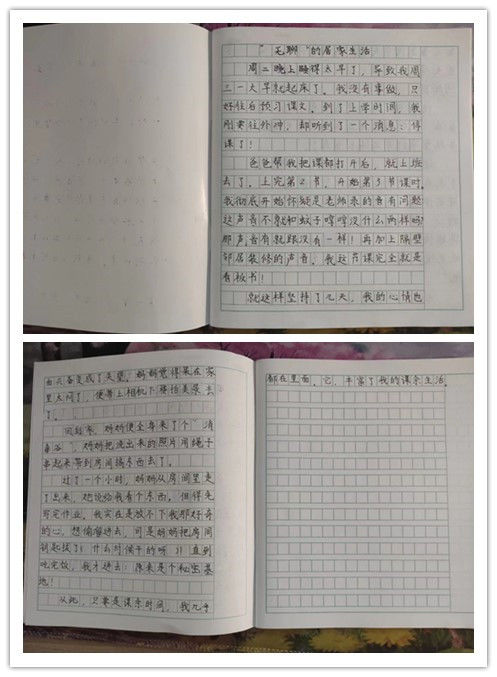 “无聊”的居家生活
周二晚上睡得太早了，导致我周
三一大早就起床了。我没有事做，只
好往后预习课文。到了上学时间，我
刚要往外冲，却听到了一个消息：停
课了！
爸爸帮我把课都打开后，就上班
去了。上完第2节，开始第3节课时，
我彻底开始怀疑是老师家的音有问题
这声音不就和蚊子哼哼没什么两样吗？
那声音有就跟没有一样！再加上隔壁
邻居装修的声音，我这节课完全就是
看板书！
就这样坚持了几天，我的心情也
由兴奋变成了失望。妈妈觉得呆在家
里太闷了，便带上相机下楼拍美景去
了。
回到家，妈妈便全身来了个“消
毒浴”，妈妈把洗出来的照片用绳子
串起来带到房间搞东西去了。
过了一个小时，妈妈从房间里走
了出来，她说给我看个东西，但得先
写完作业。我实在是放不下我那好奇
的心，想偷溜进去，可是妈妈把房间
钥匙拔了！什么时候干的呀！！直到
吃完饭，我才进去：原来是个秘密基
地！
从此，只要是课余时间，我几乎
都在里面。它，丰富了我的课余生活。